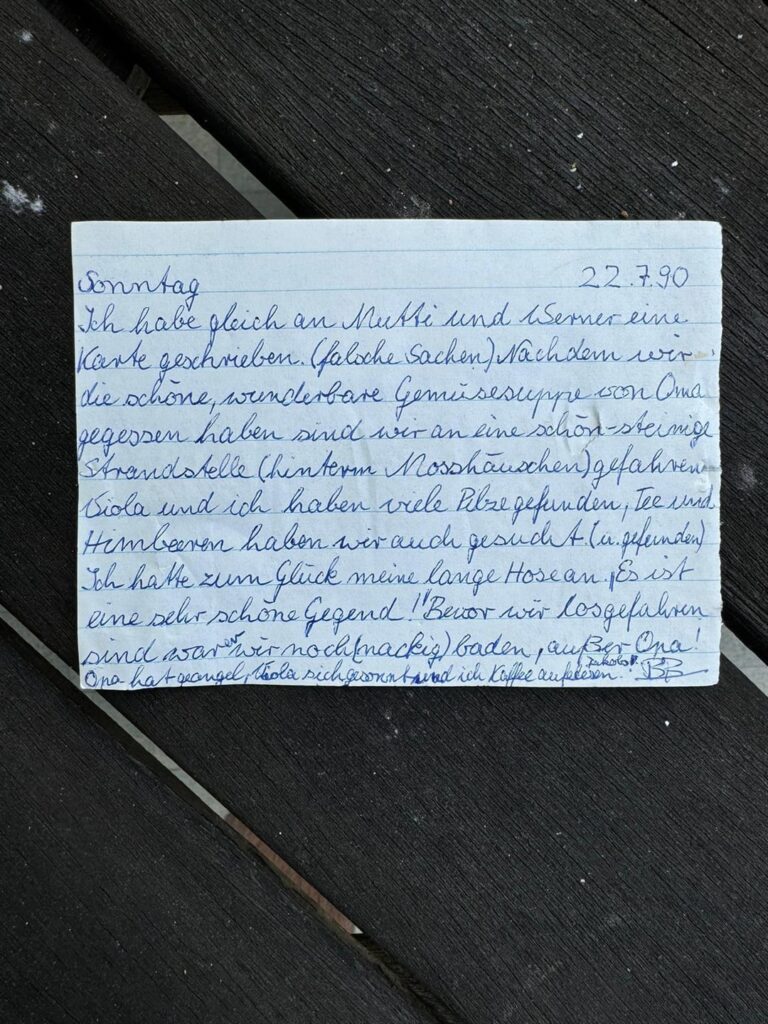 Sonntag 22.7.90
Ich habe gleich an Mutti und Werner eine
Karte geschrieben. (falsche Sachen) Nachdem wir
die schöne, wunderbare Gemüsesuppe von Oma
gegessen haben sind wir an eine schön-steinige
Strandstelle (hinterm Mosshäuschen) gefahren
Viola und ich haben viele Pilze gefunden, Tee und
Himbeeren haben wir auch gesucht. (u. gefunden)
Ich hatte zum Glück meine lange Hose an. „Es ist
eine sehr schöne Gegend!" Bevor wir losgefahren
sind waren wir noch (nackig) baden, außer Opa!
Opa hat geangel, Viola sich gesonnt und ich Kaffee BB